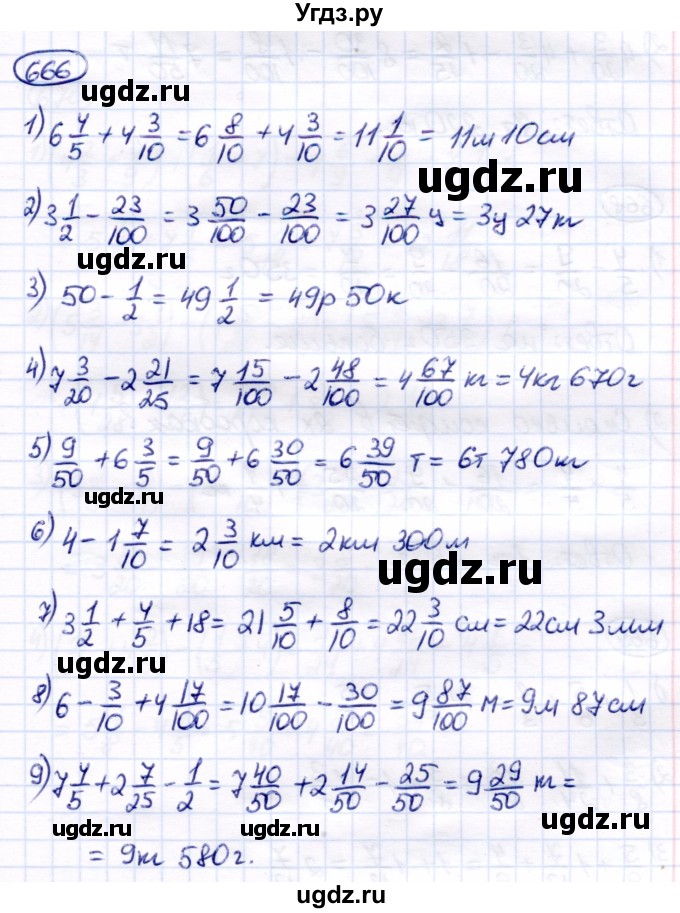 Угдз.ру
666
ugdz.ru
1) 6 4/5 + 4 3/10 = 6 8/10 + 4 3/10 = 11 1/10 = 11м 10см
ugdz.ru
2) 3 1/2 - 23/100 = 3 50/100 - 23/100 = 3 27/100 ц = 3ц 27кг
ugdz.ru
3) 50 - 1/2 = 49 1/2 = 49р 50к
4) 7 3/20 - 2 21/25 = 7 15/100 - 2 48/100 = 4 67/100 кг = 4кг 670г
ugdz.ru
5) 9/50 + 6 3/5 = 9/50 + 6 30/50 = 6 39/50 т = 6т 780кг
ugdz.ru
6) 4 - 1 7/10 = 2 3/10 км = 2км 300м
ugdz.ru
7) 3 1/2 + 4/5 + 18 = 21 5/10 + 8/10 = 22 3/10 см = 22см 3мм
ugdz.ru
8) 6 - 3/10 + 4 17/100 = 10 17/100 - 30/100 = 9 87/100 м = 9м 87см
9) 7 4/5 + 2 7/25 - 1/2 = 7 40/50 + 2 14/50 - 25/50 = 9 29/50 кг =
ugdz.ru ugdz.ru ugdz.ru
= 9кг 580г.
ugdz.ru